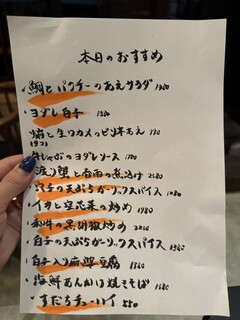 本日のおすすめ
・鯛とパクチーのあえサラダ
・ヨダレ白子
・生ワカメのピリ辛あえ
牛しゃぶのヨダレソース
・渡り蟹と春雨の煮込み
・白子の天ぷらガーリックスパイス
・イカと空芯菜の炒め 1980
・和牛の黒胡椒炒め
・白子の天ぷらガーリックスパイス
・白子入り麻婆豆腐
・海鮮あんかけ焼きそば
・すだちチューハイ 550